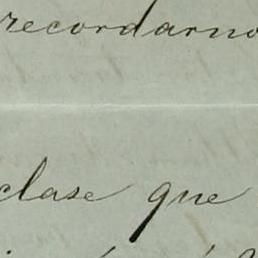 recordarno
clase que